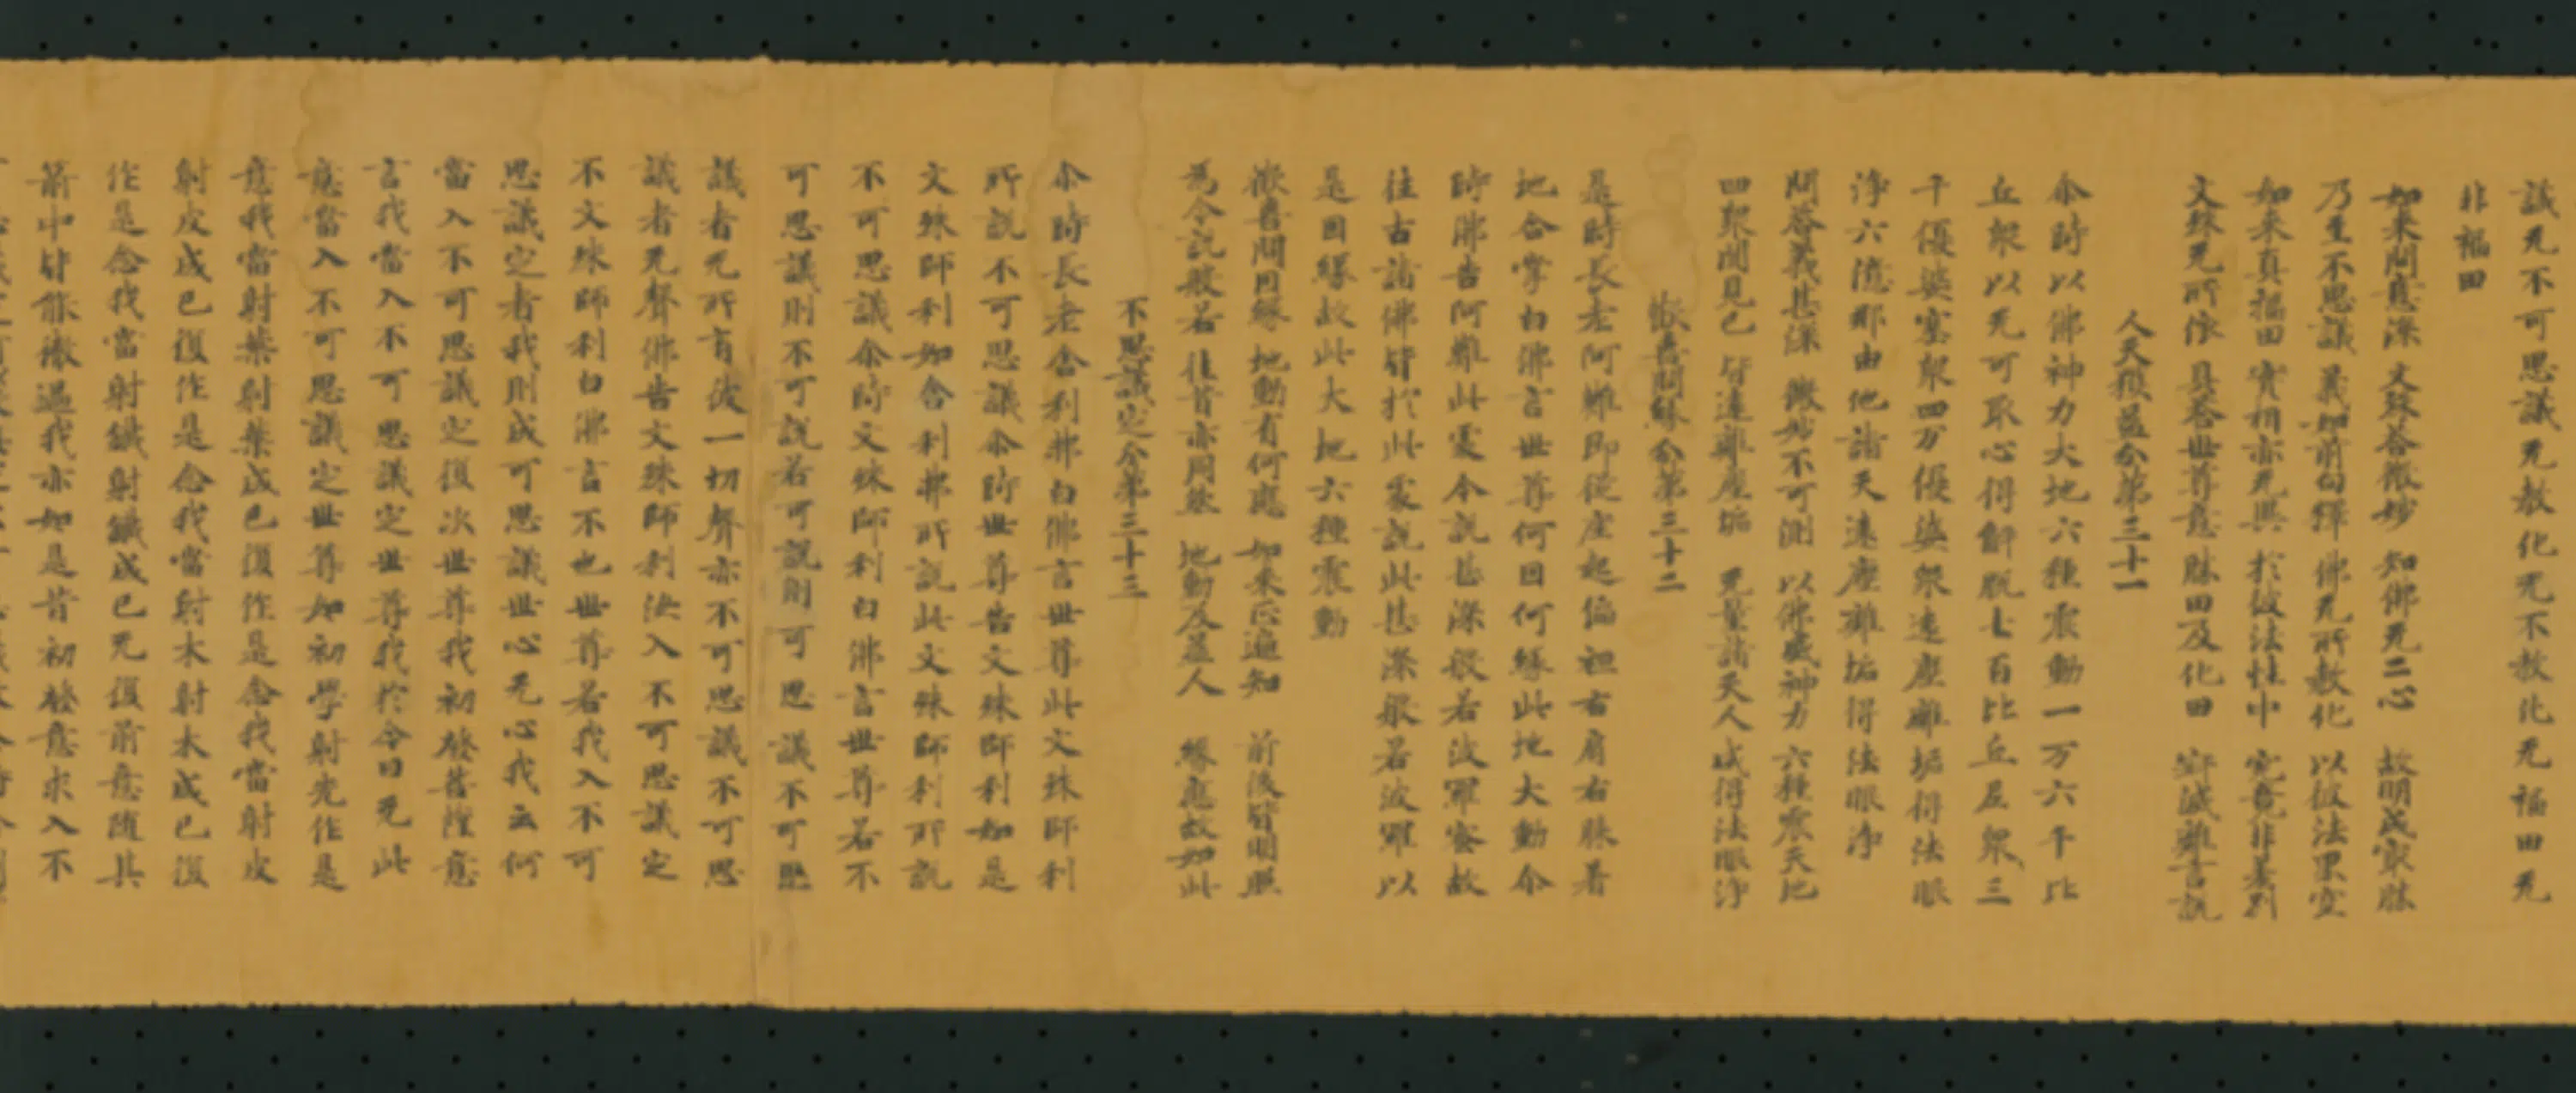 議无不可思議无教化无不教化无福田无
非福田
如來問意深 文殊荅微妙 知佛无二心 故明成家勝
乃至不思議 義如前句釋 佛无所教化 以彼法界空
如來真福田 實相亦无異 於彼法性中 究竟非差別
文殊无所依 具荅世尊意 勝田及化田 寂滅離言說
人天獲益分第三十一
尒時以佛神力大地六種震動一万六千比
丘衆以无可取心得解脫七百比丘尼衆三
千優婆塞衆四万優婆衆遠塵離垢得法眼
淨六億那由他諸天遠塵離垢得法眼淨
問荅義甚深 微妙不可測 以佛威神力 六種震天地
四衆聞見已 皆遠離塵垢 无量諸天人 咸得法眼淨
歡喜問緣分第三十二
是時長老阿難即從座起偏袒右肩右膝着
地合掌白佛言世尊何因何緣此地大動尒
時佛告阿難此處今說甚深般若波羅蜜故
往古諸佛皆於此處說此甚深般若波羅以
是因緣故此大地六種震動
歡喜問因緣 地動有何應 如來正遍知 前後皆明照
為令說般若 往昔亦同然 地動及益人 緣應故如此
不思議定分第三十三
尒時長老舍利弗白佛言世尊此文殊師利
所說不可思議尒時世尊告文殊師利如是
文殊師利如舍利弗所說此文殊師利所說
不可思議尒時文殊師利白佛言世尊若不
可思議則不可說若可說則可思議不可思
議者无所有彼一切聲亦不可思議不可思
議者无聲佛告文殊師利汝入不可思議定
不文殊師利白佛言不也世尊若我入不可
思議定者我則成可思議世心无心我云何
當入不可思議定復次世尊我初發菩提意
言我當入不可思議定世尊我於今日无此
意當入不可思議定世尊如初學射先作是
意我當射葉射葉成已復作是念我當射皮
射皮成已復作是念我當射木射木成已復
作是念我當射鐵射鐵成已无復前意随其
箭中皆能徹過我亦如是昔初發意求入不